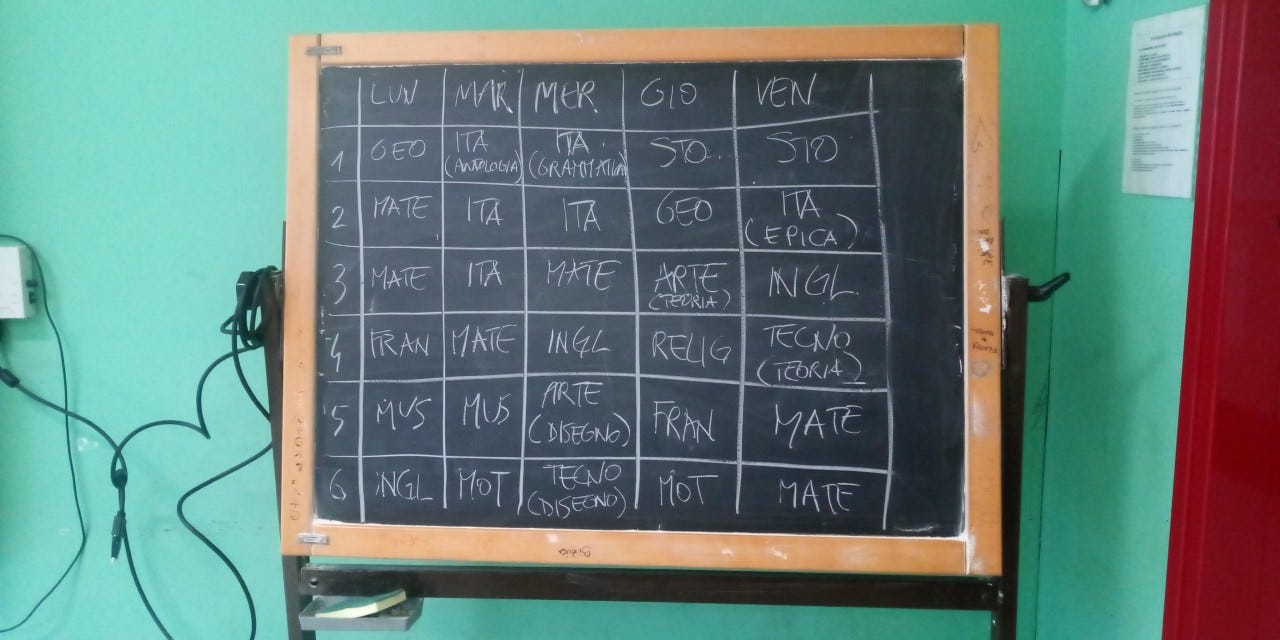 LUN MAR MER GIO VEN
1 GEO ITA (ANTOLOGIA) ITA (GRAMMATICA) STO STO
2 MATE ITA ITA GEO ITA (EPICA)
3 MATE ITA MATE ARTE (TEORIA) INGL
4 FRAN MATE INGL RELIG TECNO (TEORIA)
5 MUS MUS ARTE (DISEGNO) FRAN MATE
6 INGL MOT TECNO (DISEGNO) MOT MATE